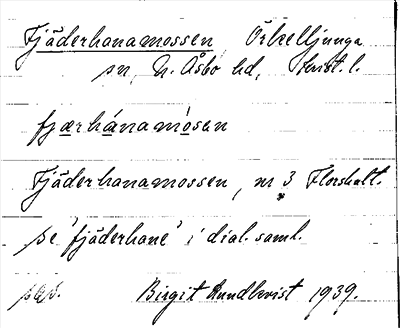 Fjäderhanamossen Örkelljunga
sn, N. Åsbo hd, Krist. l.
fjærhánamòsen
Fjäderhanamossen, nr 3 Florshult.
se 'fjäderhane' i dial. saml.
Birgit Lundkvist 1939.